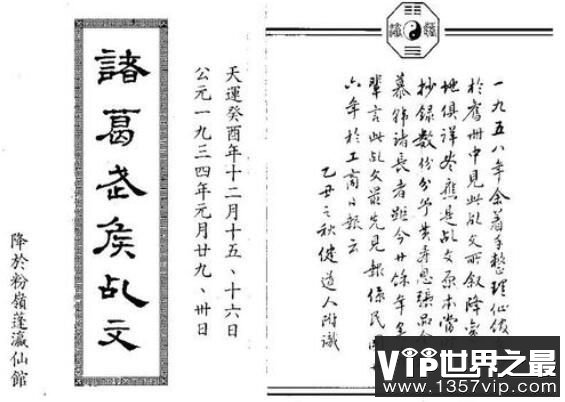 一九五八年余着手整理
於舊冊中見此乩文所叙降
地俱詳應是乩文原本當
抄錄數份分予黃張品
慕韓諸長者距今廿餘年矣
輩言此乩文最先見報係民國
六年於工商日報云
乙丑之秋健道人附識
天運癸酉年十二月十五、十六日
公元一九三四年元月廿九、卅日
諸葛武侯乩文
降於粉嶺蓬瀛仙館
VIP世界之最
www.1357vip.com